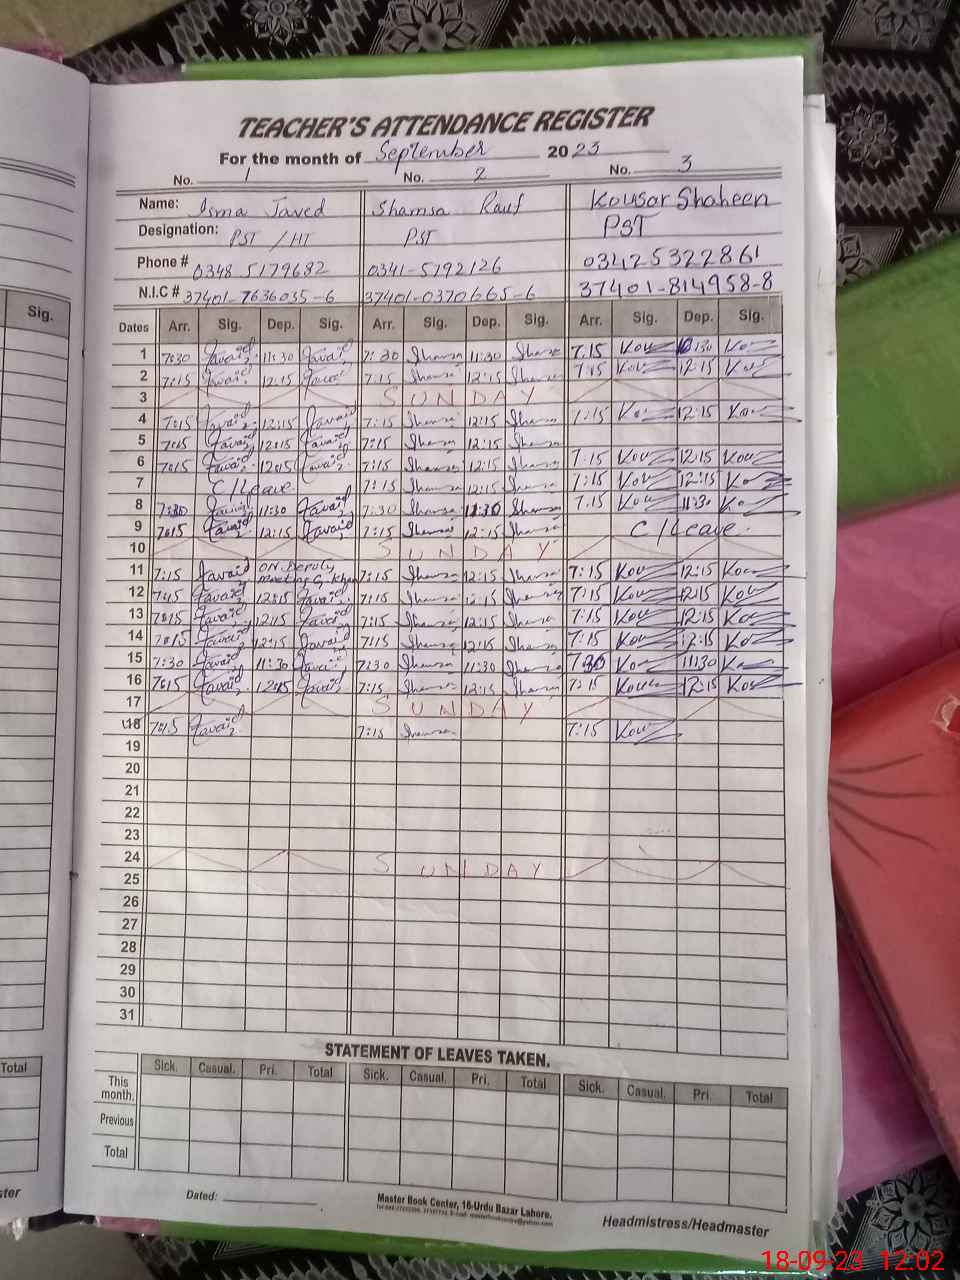 TEACHER'S ATTENDANCE REGISTER
For the month of September 2023
No. 1 No. 2 No. 3
Name: Isma Javed Shamsa Rauf Kousar Shaheen
Designation: PST / HT PST PST
Phone # 0348 5179682 0341-5792126 03425322861
N.I.C # 37401-7636035-6 37401-0370665-6 37401-814958-8
Sig.
Dates Arr. Sig. Dep. Sig. Arr. Sig. Dep. Sig. Arr. Sig. Dep. Sig.
1 7:30 Javaid 11:30 Javaid 7:30 Shamsa 11:30 Shamsa 7.15 Kou 11:30 Kou
2 7:15 Javaid 12:15 Javaid 7:15 Shamsa 12:15 Shamsa 7:15 Kou 12:15 Kou
3 SUNDAY
4 7:15 Javaid 12:15 Javaid 7:15 Shamsa 12:15 Shamsa 7:15 Kou 12:15 Kou
5 7:15 Javaid 12:15 Javaid 7:15 Shamsa 12:15 Shamsa
6 7:15 Javaid 12:15 Javaid 7:15 Shamsa 12:15 Shamsa 7:15 Kou 12:15 Kou
7 C/Leave 7:15 Shamsa 12:15 Shamsa 7:15 Kou 12:15 Kou
8 7:30 Javaid 11:30 Javaid 7:30 Shamsa 11:30 Shamsa 7.15 Kou 11:30 Kou
9 7:15 Javaid 12:15 Javaid 7:15 Shamsa 12:15 Shamsa C/Leave.
10 SUNDAY
11 7:15 Javaid ON Deputy Meeting G. Khan 7:15 Shamsa 12:15 Shamsa 7:15 Kou 12:15 Kou
12 7:15 Javaid 12:15 Javaid 7:15 Shamsa 12:15 Shamsa 7:15 Kou 12:15 Kou
13 7:15 Javaid 12:15 Javaid 7:15 Shamsa 12:15 Shamsa 7:15 Kou 12:15 Kou
14 7:15 Javaid 12:15 Javaid 7:15 Shamsa 12:15 Shamsa 7:15 Kou 12:15 Kou
15 7:30 Javaid 11:30 Javaid 7:30 Shamsa 11:30 Shamsa 7:30 Kou 11:30 Kou
16 7:15 Javaid 12:15 Javaid 7:15 Shamsa 12:15 Shamsa 7:15 Kou 12:15 Kou
17 SUNDAY
18 7:15 Javaid 7:15 Shamsa 7:15 Kou
19
20
21
22
23
24 SUNDAY
25
26
27
28
29
30
31
STATEMENT OF LEAVES TAKEN.
Total
Sick. Casual. Pri. Total Sick. Casual. Pri. Total Sick. Casual. Pri. Total
This month.
Previous
Total
Dated:
Master Book Center, 16-Urdu Bazar Lahore.
Headmistress/Headmaster
18-09-23 12:02